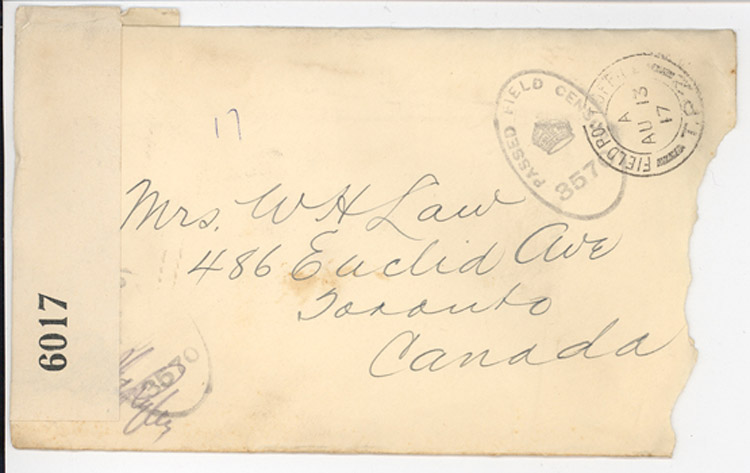 17
PASSED FIELD CENS
357
FIELD POST OFFICE
A
AU 13
17
Mrs. W H Law
486 Euclid Ave
Toronto
Canada
6017
3570